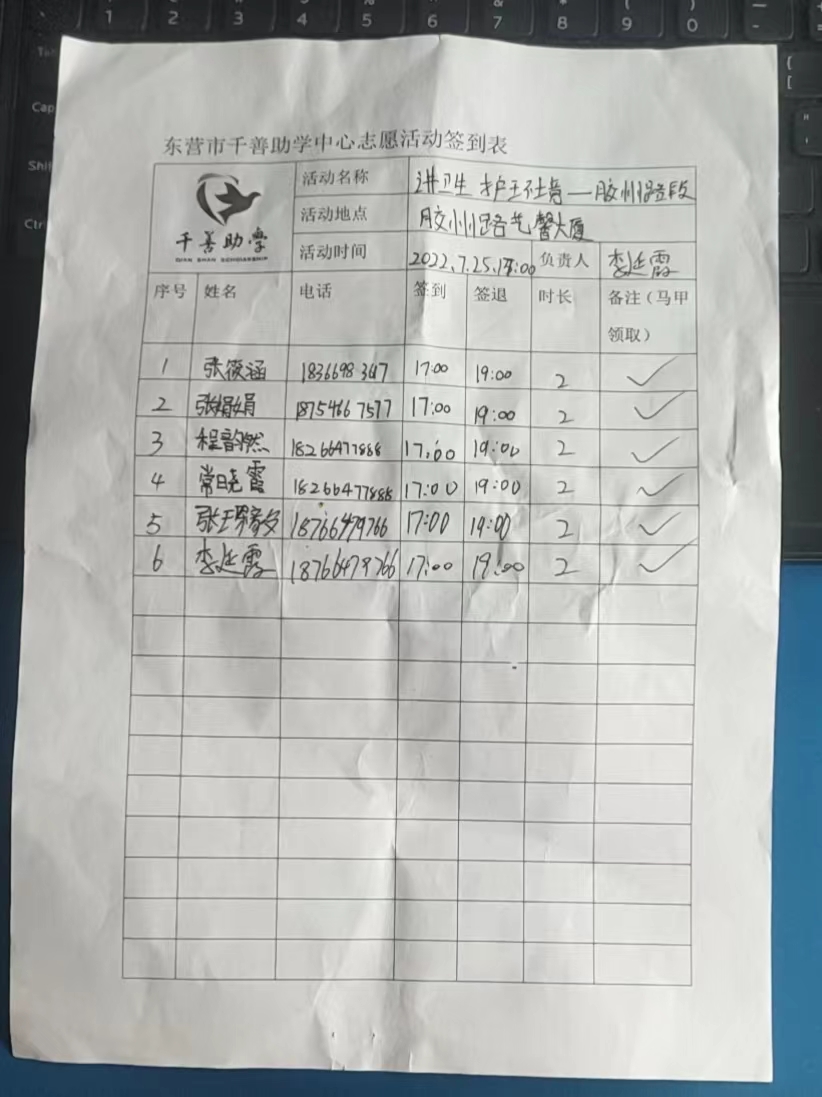 东营市千善助学中心志愿活动签到表
千善助学
QIAN SHAN SCHOLARSHIP
活动名称 讲卫生 护环境—胶州路段
活动地点 胶州路艺馨大厦
活动时间 2022.7.25.17:00 负责人 李延霞
序号 姓名 电话 签到 签退 时长 备注（马甲领取）
1 张筱涵 17:00 19:00 2 ✓
2 张娟娟 18754667577 17:00 19:00 2 ✓
3 程韵然 18266477888 17:00 19:00 2 ✓
4 常晓霞 18266477888 17:00 19:00 2 ✓
5 18766479766 17:00 19:00 2 ✓
6 李延霞 18766479766 17:00 19:00 2 ✓